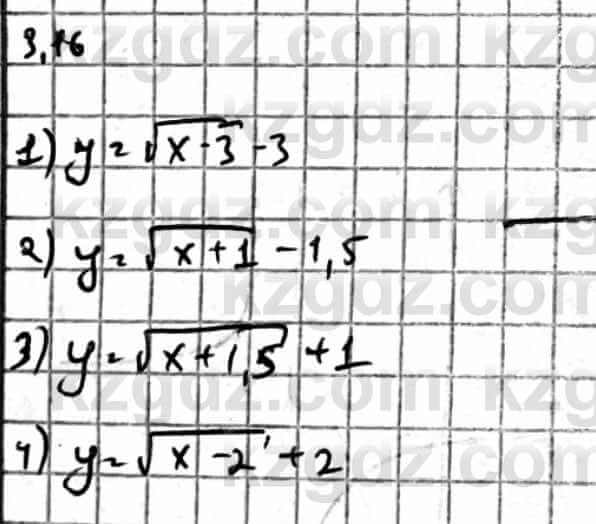 kzgdz.com kzg
9.16
1) y = √x-3 - 3
kzgdz.com
kzgdz.com
2) y = √x+1 - 1,5
kzgdz.com
3) y = √x+1,5 + 1
kzgdz.com kzg
4) y = √x-2 + 2
kzgdz.com